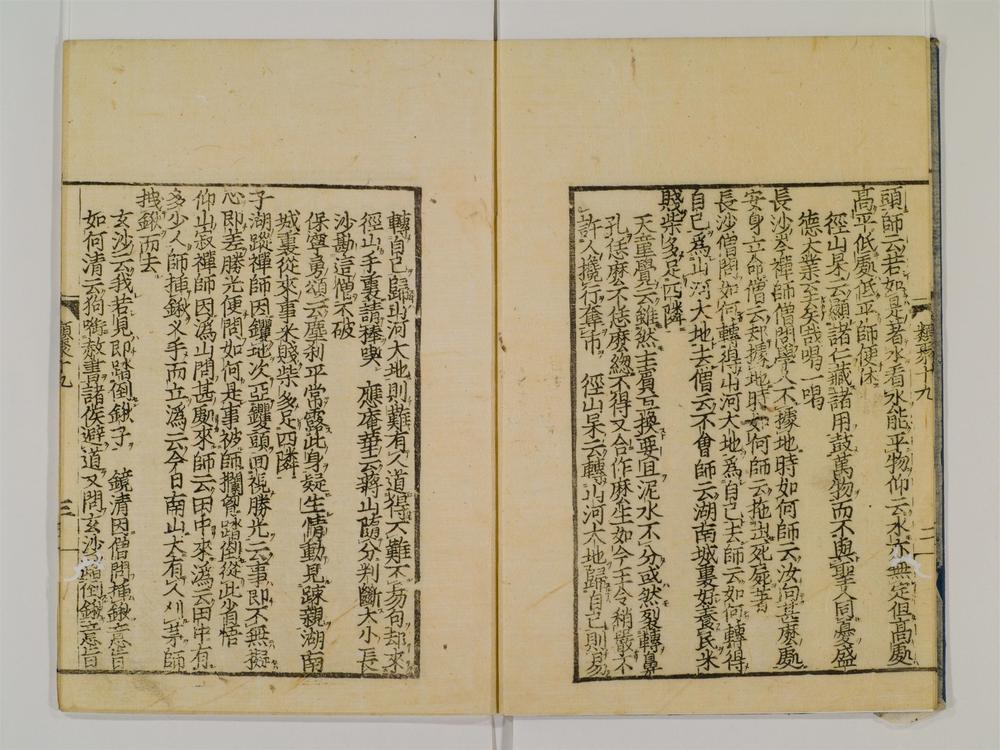 頭師云若如是著水看水能平物仰云水亦無定但高處
高平低處低平師便休
徑山杲云顯諸仁藏諸用鼓萬物而不與聖人同憂盛
德大業至矣哉喝一喝
長沙岑禪師僧問學人不據地時如何師云汝向甚麼處
安身立命僧云却據地時如何師云拖出死屍著
長沙僧問如何轉得山河大地爲自己去師云如何轉得
自己爲山河大地去僧云不會師云湖南城裏好養民米
賤柴多足四隣
天童覺云雖然主賓互換要且泥水不分或然裂轉鼻
孔恁麽不恁麽總不得又合作麽生如今王令稍嚴不
許人攙行奪市 徑山杲云轉山河大地歸自己則易
類聚十九
二
轉自己歸山河大地則難有人道得不難不易句却來
徑山手裏請棒喫 應庵華云蔣山隨分判斷大小長
沙勘這僧不破
保寧勇頌云塵刹平常露此身疑生情動見踈親湖南
城裏從來事米賤柴多足四隣
子湖蹤禪師因钁地次亞钁頭回視勝光云事即不無擬
心即差勝光便問如何是事被師攔胷踏倒從此省悟
仰山寂禪師因潙山問甚處來師云田中來潙云田中有
多少人師揷鍬叉手而立潙云今日南山大有人刈茅師
拽鍬而去
玄沙云我若見即踏倒鍬子 鏡淸因僧問揷鍬意旨
如何清云狗啣赦書諸侯避道又問玄沙踏倒鍬意旨
類聚十九
三